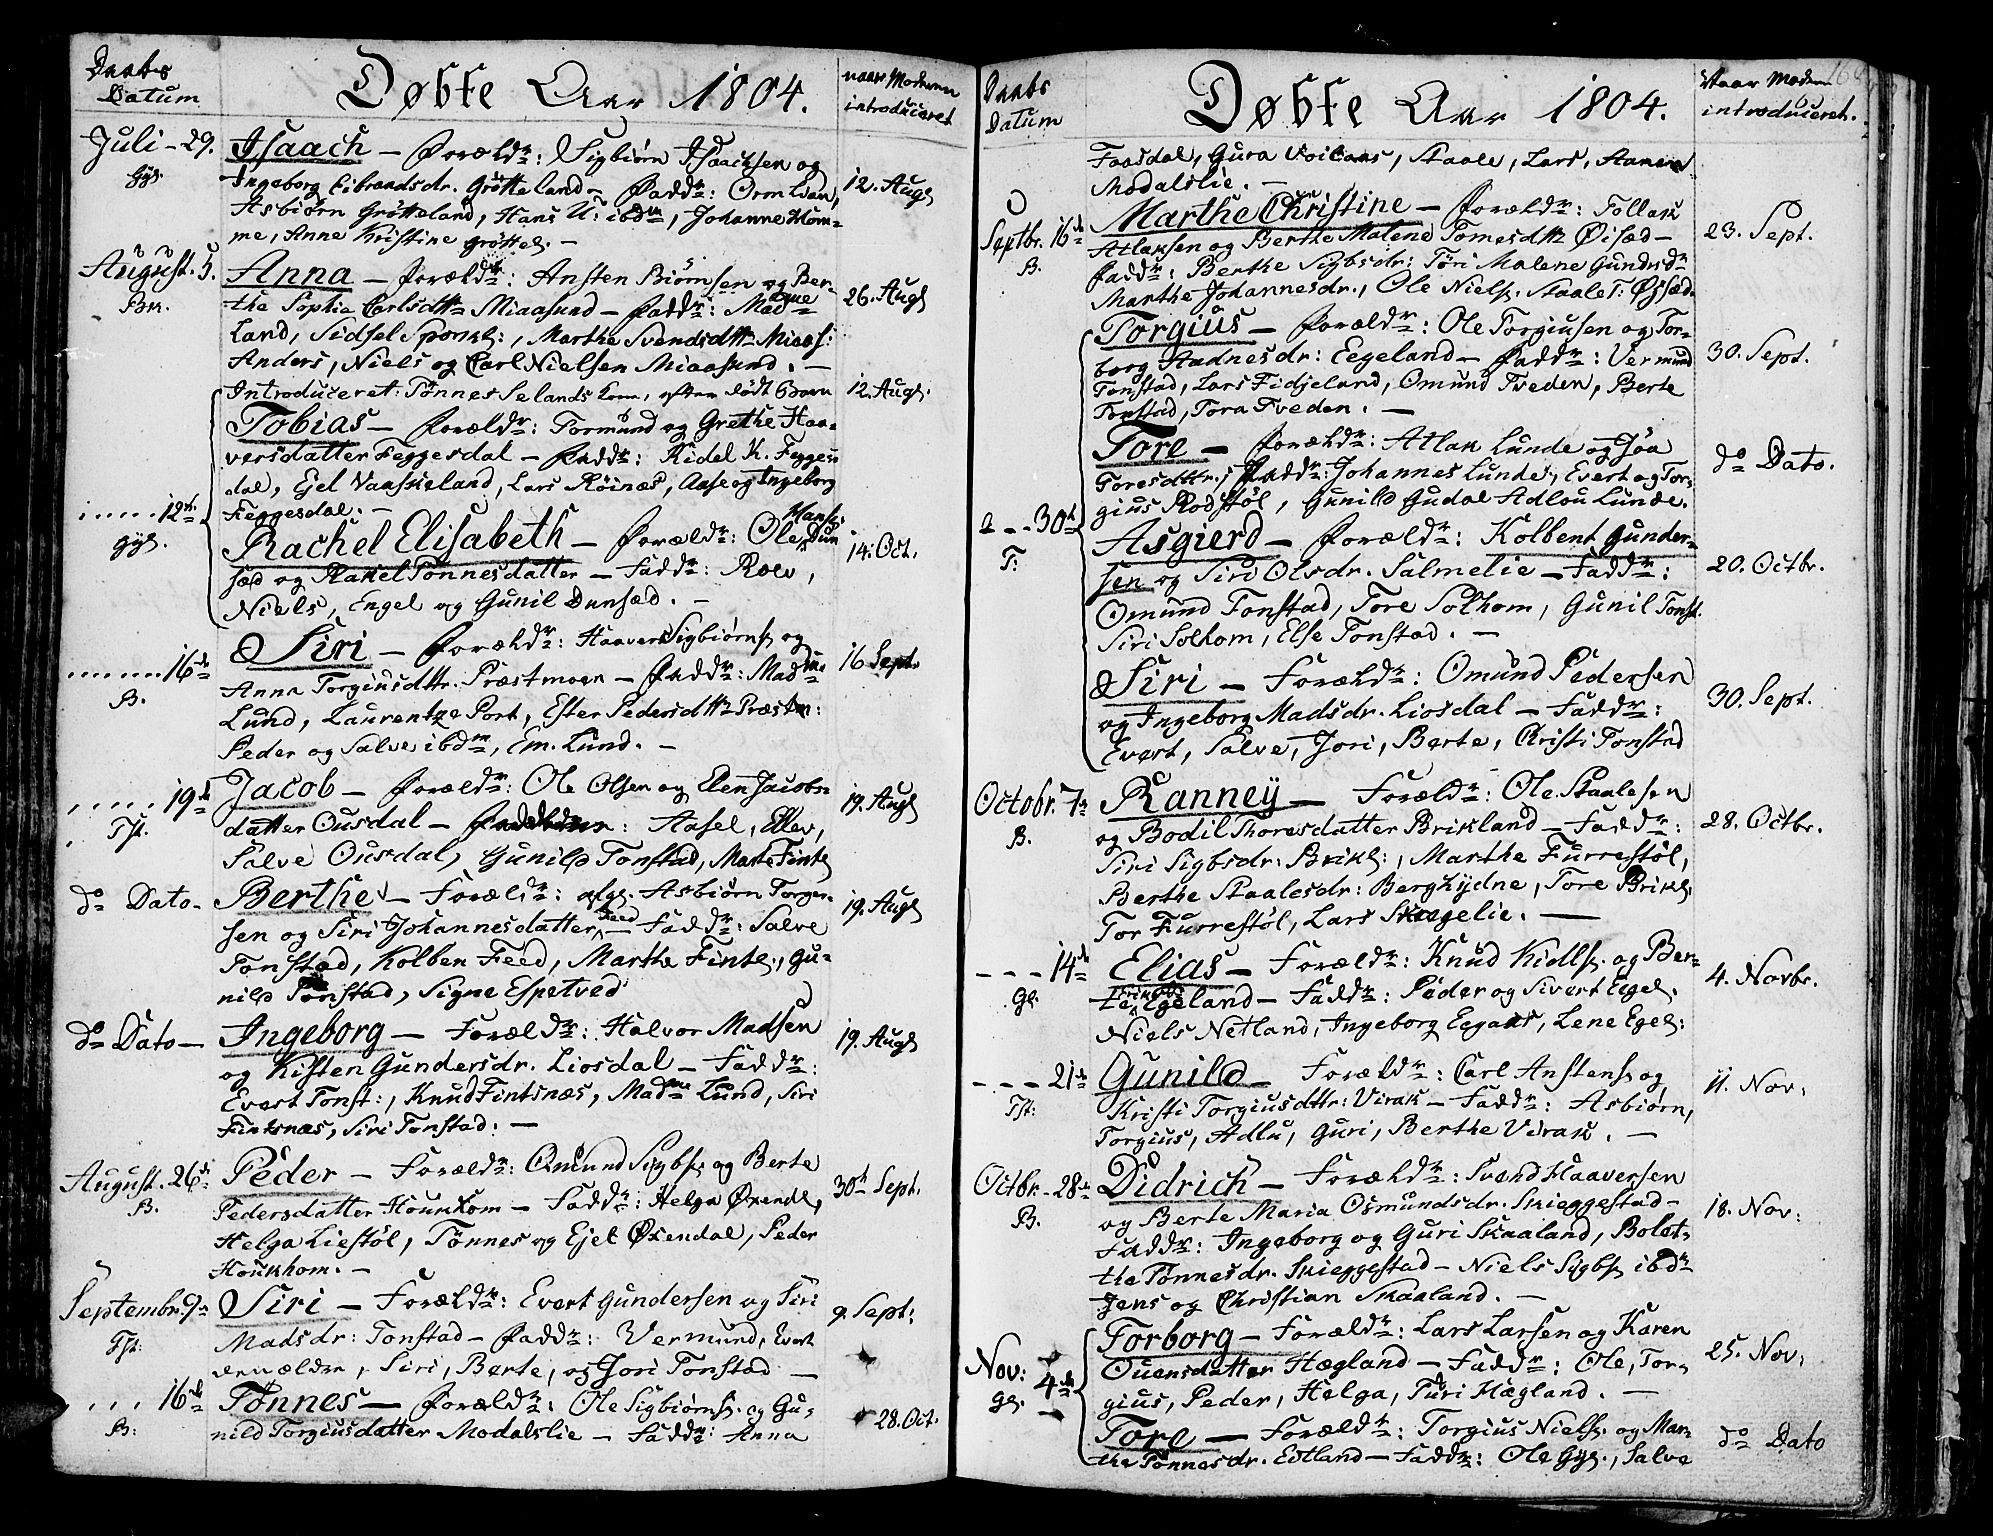 Daabs
Datum
Døbte Aar 1804.
naar Moderen
introduceret
Juli - 29.
Gyl.
Isaach — Forældr: Sigbiørn Isaachsen og
Ingeborg Eibrandsdr. Grøtteland — Faddr: Orm Lian,
Asbiørn Grøtteland, Hans U: ibdm, Johanne Mom-
me, Anne Kristine Grøttel. —
12. Augs
August. 5.
Bk.
Anna — Forældr: Ansten Biørnsen og Ber-
the Sophia Carlsdttr Miaasund — Faddr: Madme
Land, Sidsel Sponkl:, Marthe Svendsdttr Miaas:
Anders, Niels og Carl Nielsen Miaasund. —
26. Augs
Introduceret: Tønnes Selands Kone, efter dødt Barn
12. Augs.
Tobias — Forældr: Tormund og Grethe Haa-
versdatter Feggesdal — Faddr: Kidel K. Fegges-
dal, Ejel Vaaskeland, Lars Røinæs, Aase og Ingeborg
Feggesdal. —
..... 12te
Gyl.
Rachel Elisabeth — Forældr: Ole Hansen Dun
sæd og Rakel Tønnesdatter — Faddr: Roev,
Niels, Engel og Gunil Dunsæd. —
14. Oct.
....... 16de
B.
Siri — Forældr: Haaver Sigbiørns og
Anna Torgiusdttr. Præstmoen — Faddr: Madme
Lund, Laurentze Port, Ester Pedersdttr Præstm:
Peder og Salve ibdm, Em. Lund. —
16 Sept.
..... 19de
Tst.
Jacob — Forældr: Ole Olsen og Elen Jacobs-
datter Ousdal — Faddere: Aasel, Ellev,
Salve Ousdal, Gunild Tonstad, Marte Fintl
19. Augs
do Dato -
Berthe — Forældr: afg. Asbiørn Torger-
sen og Siri Johannesdatter Feed — Faddr: Salve
Tonstad, Kolben Feed, Marthe Fintl., Gu-
nild Tonstad, Signe Espetved
19. Augs
do Dato —
Ingeborg — Forældr: Halvor Madsen
og Kisten Gundersdr. Liosdal — Faddr:
Evert Tonst:, Knud Fintsnæs, Madme Lund, Siri
Fintsnæs, Siri Tonstad: —
19. Augs
August. 26de
B.
Peder — Forældr: Omund Sigbs og Berte
Pedersdatter Hounkom — Faddr: Helga Øxendl,
Helga Liestøl, Tønnes og Ejel Øxendal, Peder
Houkhom. —
30t Sept.
Septembr: 9de
Tst:
Siri — Forældr: Evert Gundersen og Siri
Madsdr: Tonstad — Faddr: Vermund, Evert
den ældre, Siri, Berte, og Jori Tonstad —
9. Sept:
... 16de
B:
Tønnes — Forældr: Ole Sigbiørns. og Gu-
nild Torgiusdatter Modalslie — Faddr: Anna
28. Oct.
Daabs
Datum
Døbte Aar 1804.
Naar Modern
introduceret.
168
Faasdal, Gura Voilaas, Staale, Lars, Aanen
Modalslie. —
Septbr. 16de
B.
Marthe Christine — Forældr: Follak
Atlaksen og Berthe Malene Tomesdttr Øisæd —
Faddr: Berthe Sigbsdr: Tøri Malene Gundersdr
Marthe Johannesdr., Ole Niels. Staale T: Øysæd.
23. Sept.
Torgius — Forældr: Ole Torgiusen og Tor-
borg Aadnesdr: Eegeland — Faddr: Vermund
Tonstad, Lars Fidjeland, Omund Tveden, Berte
Tonstad, Tora Tveden. —
30. Sept.
Tore — Forældr: Atlak Lunde og Jøa
Toresdttr., Faddr: Johannes Lunde, Evert og Tor-
gius Rodstøl, Gunild Gudal Adlou Lunde.
do Dato.
a - - 30te
T:
Asgierd — Forældr: Kolbent Gunder-
sen og Siri Olsdr. Salmelie — Faddr:
Omund Tonstad, Tore Solhom, Gunil Tonst.
Siri Solhom, Else Tonstad. —
20. Octbr.
Siri — Forældr: Omund Pedersen
og Ingeborg Madsdr. Liosdal — Faddr:
Evert, Salve, Jori, Berte, Christi Tonstad
30. Sept.
Octobr. 7de
B.
Ranney — Forældr: Ole Staalesen
og Bodil Thoresdatter Brikland — Faddr:
Siri Sigbsdr: Brikl:, Marthe Furrestøl,
Berthe Staalesdr: Berghydne, Tore Brikl.
Tor Furrestøl, Lars Skægelie. —
28. Octbr.
- - - 14de
Gl.
Elias — Forældr: Knud Kidls. og Ber-
te Egeland — Faddr: Peder og Sivert Egel.
Niels Netland, Ingeborg Egaas, Lene Egel:
4. Novbr.
- - - 21de
Tst:
Gunild — Forældr: Carl Anstens. og
Kristi Torgiusdttr: Virak — Faddr: Asbiørn,
Torgius, Adlu, Guri, Berthe Virak. —
11. Nov:
Octbr. - 28de
B.
Didrich — Forældr: Svend Haaversen
og Berte Maria Osmundsdr. Skieggestad —
Faddr: Ingeborg og Guri Skaaland, Bolet-
the Tønnesdr. Skieggestad — Niels Sigbs. ibdm
Jens og Christian Skaaland. —
18. Nov:
Nov: 4de
Gl.
Torborg — Forældr: Lars Larsen og Karen
Ouensdatter Hægland — Faddr: Ole, Tor-
gius, Peder, Helga, Turi Hægland. —
25. Nov:
Tore — Forældr: Torgius Niels. og Mar-
the Tønnesdr. Eitland — Faddr: Ole Gyl., Salve
do Dato